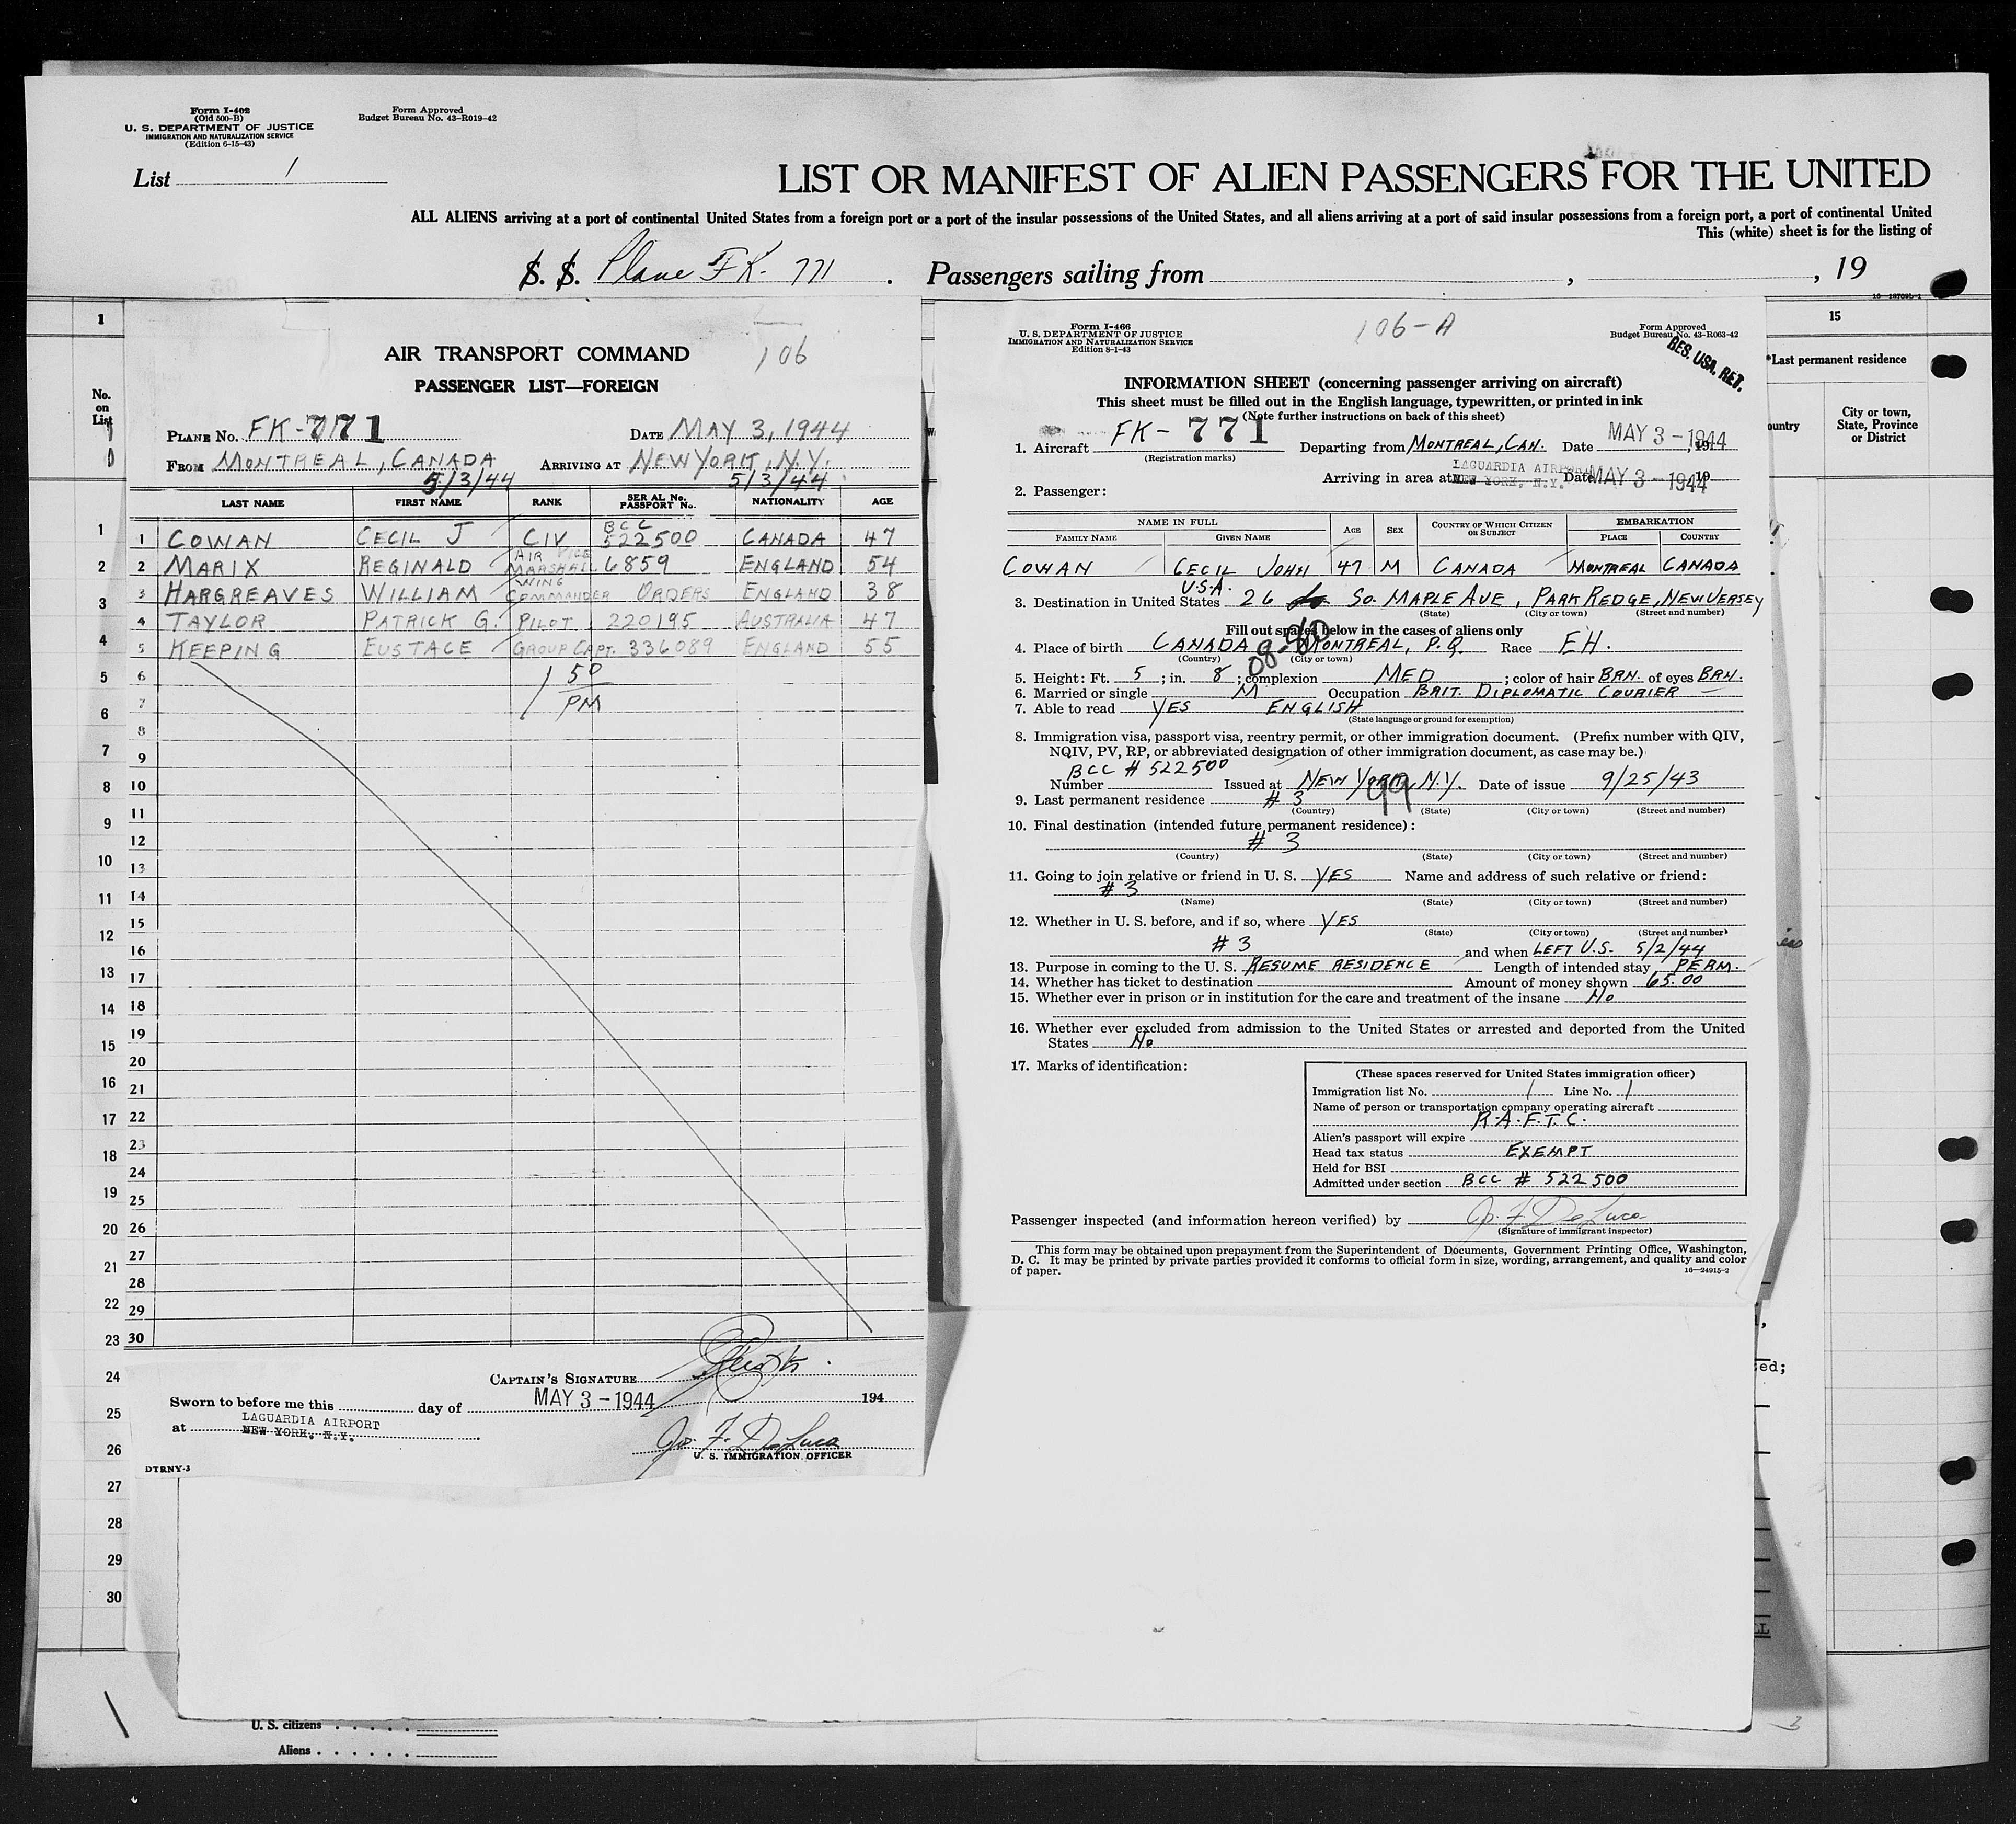 Form I-402
(Old 500-B)
U. S. DEPARTMENT OF JUSTICE
IMMIGRATION AND NATURALIZATION SERVICE
(Edition 6-15-43)
Form Approved
Budget Bureau No. 43-R019-42
List 1
LIST OR MANIFEST OF ALIEN PASSENGERS FOR THE UNITED
ALL ALIENS arriving at a port of continental United States from a foreign port or a port of the insular possessions of the United States, and all aliens arriving at a port of said insular possessions from a foreign port, a port of continental United
This (white) sheet is for the listing of
S. S. Plane FK-771 . Passengers sailing from , , 19
1
No.
on
List
1
2
3
4
5
6
7
8
9
10
11
12
13
14
15
16
17
18
19
20
21
22
23
24
25
26
27
28
29
30
106
AIR TRANSPORT COMMAND
PASSENGER LIST—FOREIGN
PLANE No. FK-771 DATE MAY 3, 1944
FROM MONTREAL, CANADA ARRIVING AT NEW YORK, N.Y.
5/3/44 5/3/44
LAST NAME FIRST NAME RANK SERIAL No. PASSPORT No. NATIONALITY AGE
1 COWAN CECIL J CIV BCC 522500 CANADA 47
2 MARIX REGINALD AIR VICE MARSHAL 6859 ENGLAND 54
3 HARGREAVES WILLIAM WING COMMANDER ORDERS ENGLAND 38
4 TAYLOR PATRICK G. PILOT 220195 AUSTRALIA 47
5 KEEPING EUSTACE GROUP CAPT. 336089 ENGLAND 55
6 1 50
7 PM
8
9
10
11
12
13
14
15
16
17
18
19
20
21
22
23
24
25
26
27
28
29
30
CAPTAIN'S SIGNATURE
Sworn to before me this day of MAY 3 - 1944 194
at LAGUARDIA AIRPORT
NEW YORK, N.Y.
Jo. F. DeLuca
U. S. IMMIGRATION OFFICER
DTRNY-3
Form I-466
U. S. DEPARTMENT OF JUSTICE
IMMIGRATION AND NATURALIZATION SERVICE
Edition 8-1-43
106-A
Form Approved
Budget Bureau No. 43-R063-42
RES. USA, RET.
INFORMATION SHEET (concerning passenger arriving on aircraft)
This sheet must be filled out in the English language, typewritten, or printed in ink
(Note further instructions on back of this sheet)
1. Aircraft FK-771 Departing from MONTREAL, CAN. Date MAY 3 - 1944, 19
(Registration marks)
Arriving in area at LAGUARDIA AIRPORT NEW YORK, N.Y. Date MAY 3 - 1944 19
2. Passenger:
NAME IN FULL AGE SEX COUNTRY OF WHICH CITIZEN OR SUBJECT EMBARKATION
FAMILY NAME GIVEN NAME PLACE COUNTRY
COWAN CECIL JOHN 47 M CANADA MONTREAL CANADA
3. Destination in United States U.S.A. 26 So. MAPLE AVE, PARK REDGE, NEW JERSEY
(State) (City or town) (Street and number)
Fill out spaces below in the cases of aliens only
4. Place of birth CANADA MONTREAL, P.Q. Race EH.
(Country) (City or town)
5. Height: Ft. 5 ; in. 8 ; complexion MED ; color of hair BRN. of eyes BRN.
6. Married or single M Occupation BRIT. DIPLOMATIC COURIER
7. Able to read YES ENGLISH
(State language or ground for exemption)
8. Immigration visa, passport visa, reentry permit, or other immigration document. (Prefix number with QIV,
NQIV, PV, RP, or abbreviated designation of other immigration document, as case may be.)
BCC # 522500
Number Issued at NEW YORK, N.Y. Date of issue 9/25/43
99
9. Last permanent residence # 3
(Country) (State) (City or town) (Street and number)
10. Final destination (intended future permanent residence):
# 3
(Country) (State) (City or town) (Street and number)
11. Going to join relative or friend in U. S. YES Name and address of such relative or friend:
# 3
(Name) (State) (City or town) (Street and number)
12. Whether in U. S. before, and if so, where YES
(State) (City or town) (Street and number)
# 3 and when LEFT U.S. 5/2/44
13. Purpose in coming to the U. S. RESUME RESIDENCE Length of intended stay PERM.
14. Whether has ticket to destination Amount of money shown 65.00
15. Whether ever in prison or in institution for the care and treatment of the insane No
16. Whether ever excluded from admission to the United States or arrested and deported from the United
States No
17. Marks of identification:
(These spaces reserved for United States immigration officer)
Immigration list No. 1 Line No. 1
Name of person or transportation company operating aircraft
R.A.F.T.C.
Alien's passport will expire
Head tax status EXEMPT
Held for BSI
Admitted under section BCC # 522500
Passenger inspected (and information hereon verified) by Jo. F. DeLuca
(Signature of immigrant inspector)
This form may be obtained upon prepayment from the Superintendent of Documents, Government Printing Office, Washington,
D. C. It may be printed by private parties provided it conforms to official form in size, wording, arrangement, and quality and color
of paper.
16—24915-2
15
*Last permanent residence
City or town,
State, Province
or District
U. S. citizens
Aliens